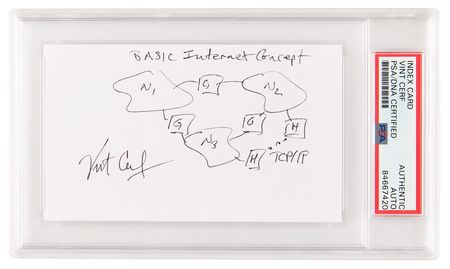 BASIC Internet Concept
N1 G N2
G G H
N3
H TCP/IP
Vint Cerf
INDEX CARD
VINT CERF
PSA/DNA CERTIFIED
PSA
AUTHENTIC
AUTO
84667420